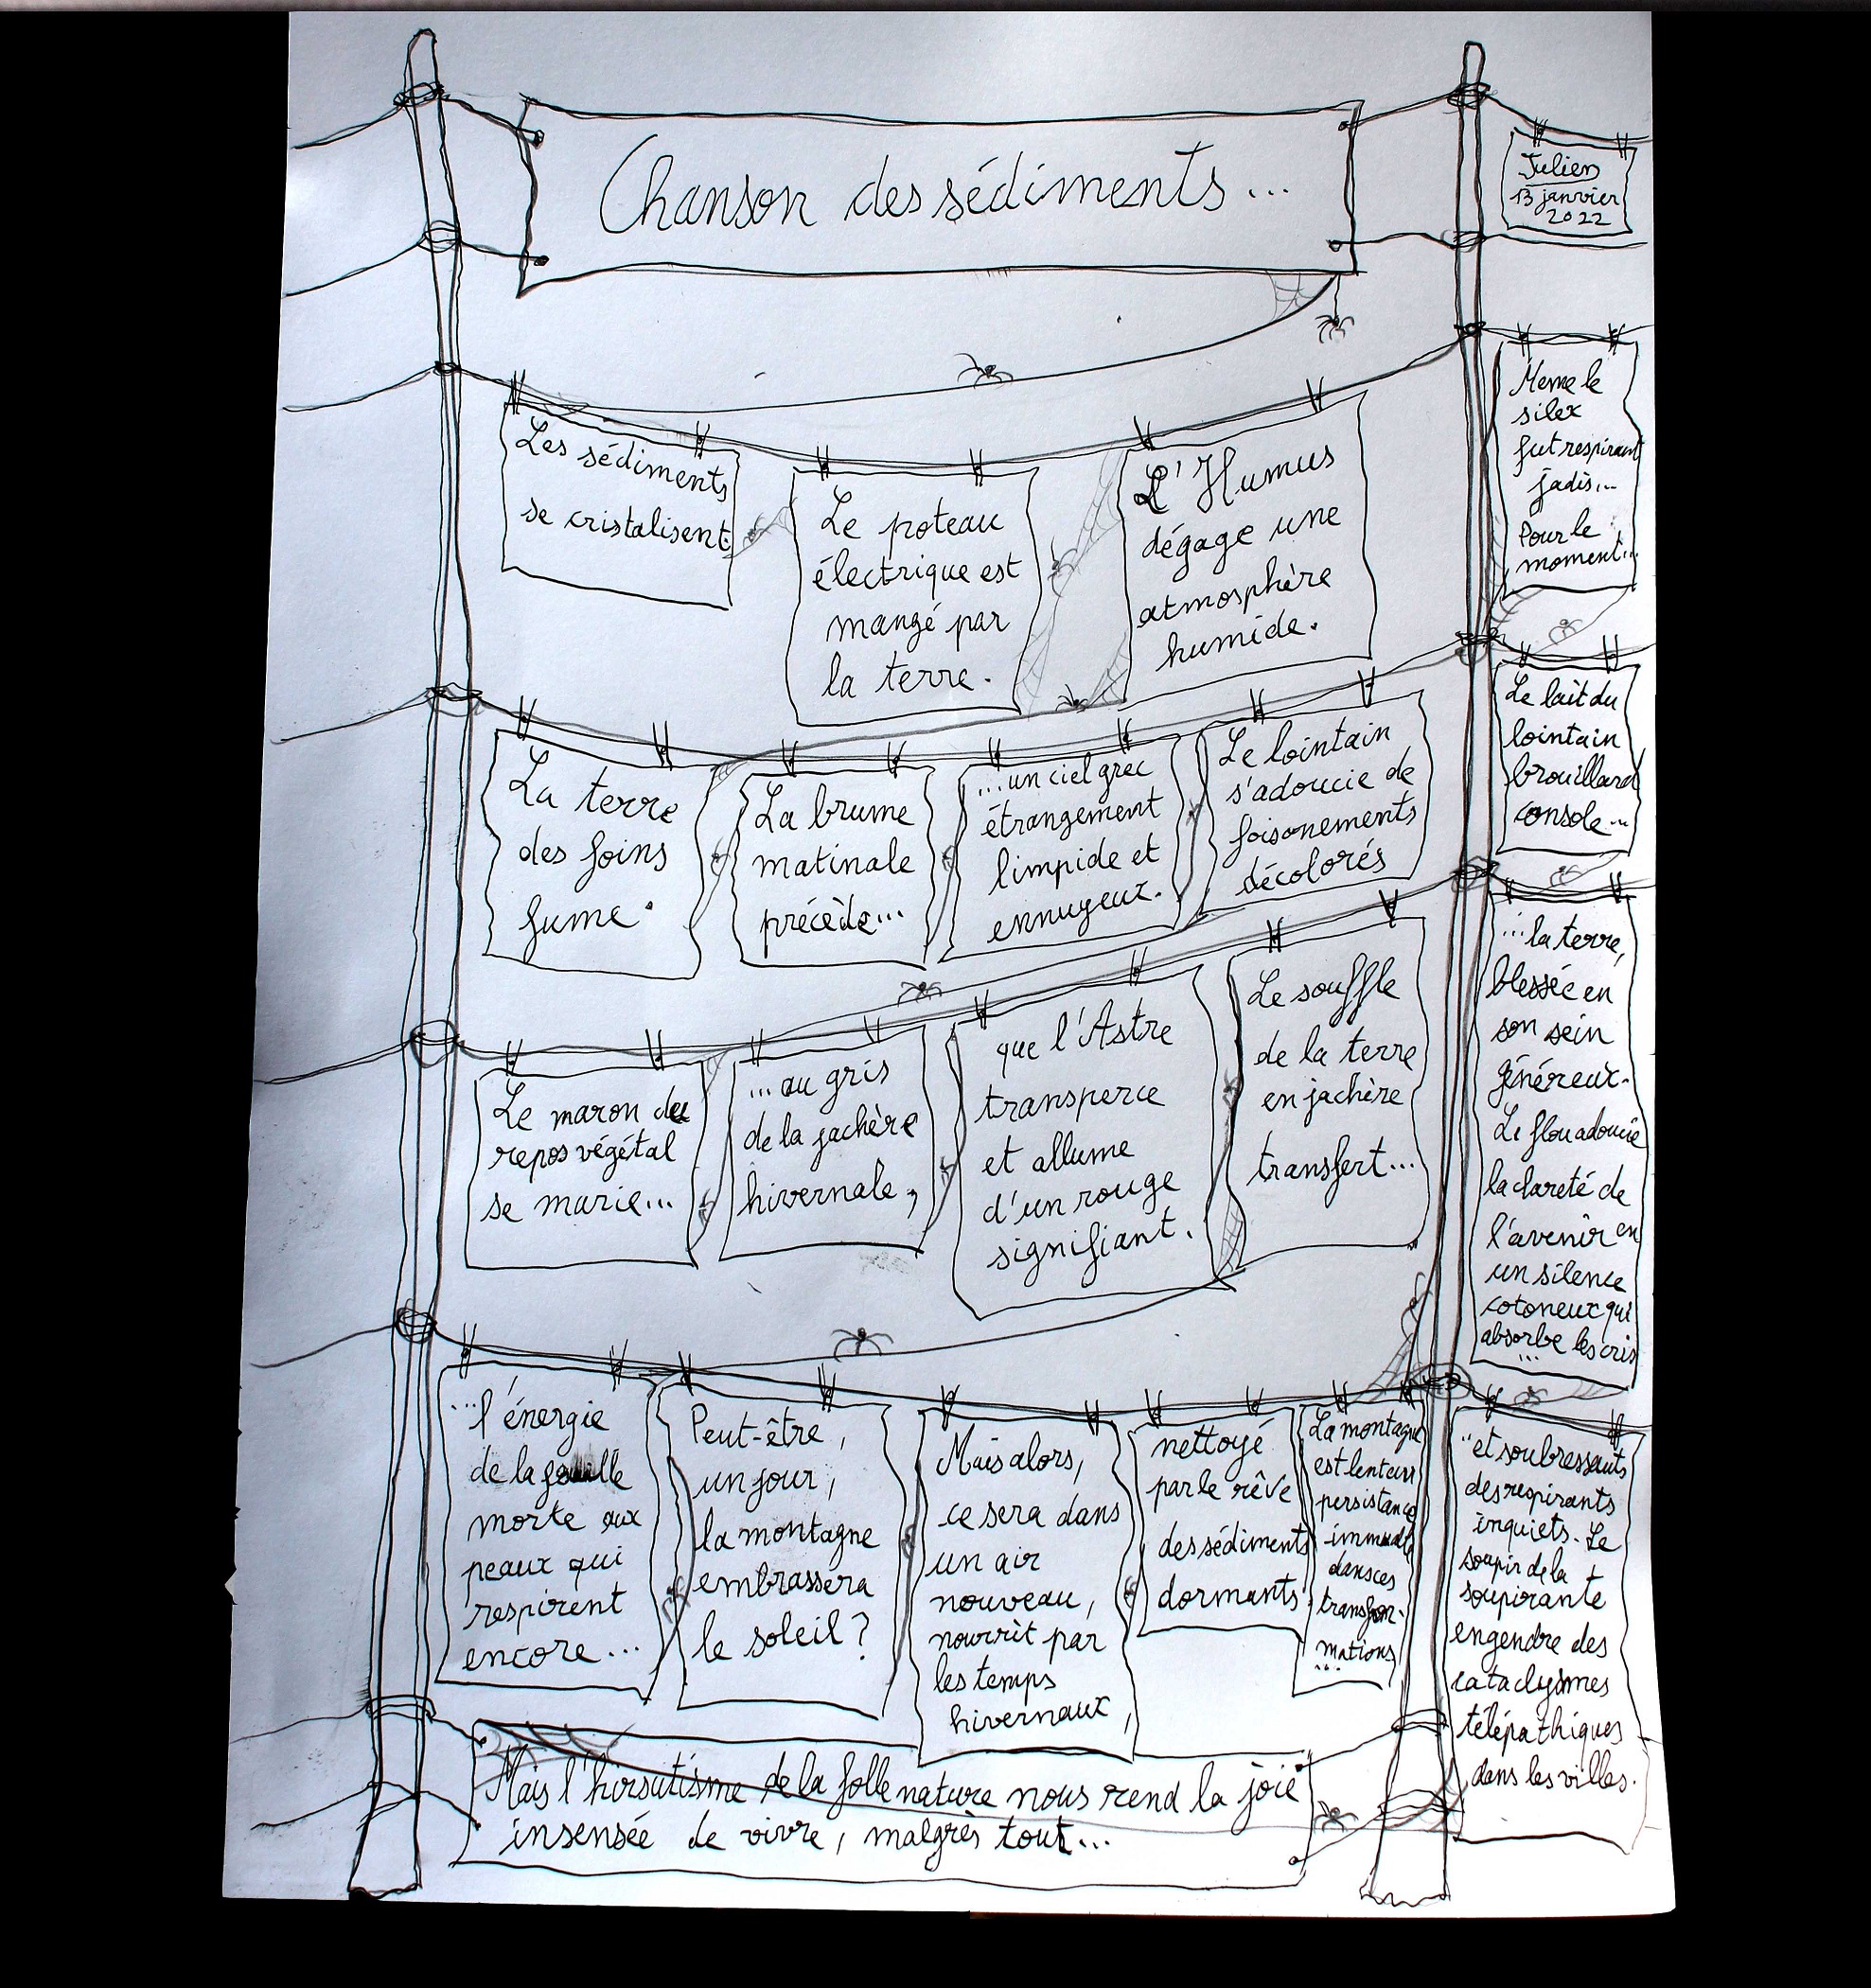 Chanson des sédiments...
Julien
13 janvier
2022
Les sédiments
se cristalisent
Le poteau
électrique est
mangé par
la terre.
L'Humus
dégage une
atmosphère
humide.
La terre
des foins
fume.
La brume
matinale
précède...
...un ciel grec
étrangement
limpide et
ennuyeux.
Le lointain
s'adoucie de
foisonements
décolorés
Le maron du
repos végétal
se marie...
...au gris
de la jachère
hivernale,
que l'Astre
transperce
et allume
d'un rouge
signifiant.
Le souffle
de la terre
en jachère
transfert...
...l'énergie
de la
morte aux
peaux qui
respirent
encore...
Peut-être,
un jour,
la montagne
embrassera
le soleil?
Mais alors,
ce sera dans
un air
nouveau,
nourrit par
les temps
hivernaux,
nettoyé
par le rêve
des sédiments
dormants.
La montagne
est lenteur
persistance
immuable
dans ces
transfor-
mations
...
Meme le
silex
fut respirant
jadis...
Pour le
moment...
Le lait du
lointain
brouillard
console...
...la terre,
blessée en
son sein
généreux.
Le flou adoucie
la clareté de
l'avenir en
un silence
cotoneux qui
absorbe les cris
...
...et soubressauts
des respirants
inquiets. Le
soupir de la
soupirante
engendre des
cataclysmes
télépathiques
dans les villes.
Mais l'hirsutisme de la folle nature nous rend la joie
insensée de vivre, malgrès tout...